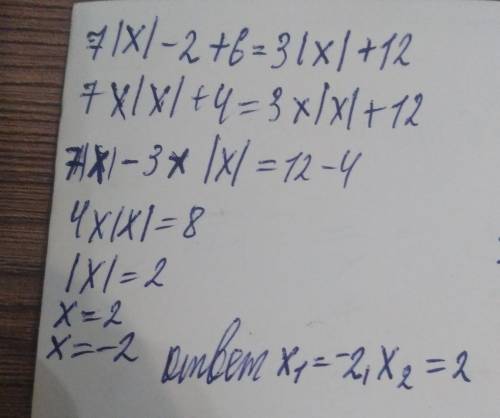 7|x| - 2 + 6 = 3|x| + 12
7x|x| + 4 = 3x|x| + 12
7|x| - 3x |x| = 12 - 4
4x|x| = 8
|x| = 2
x = 2
x = -2
ответ x₁ = -2, x₂ = 2